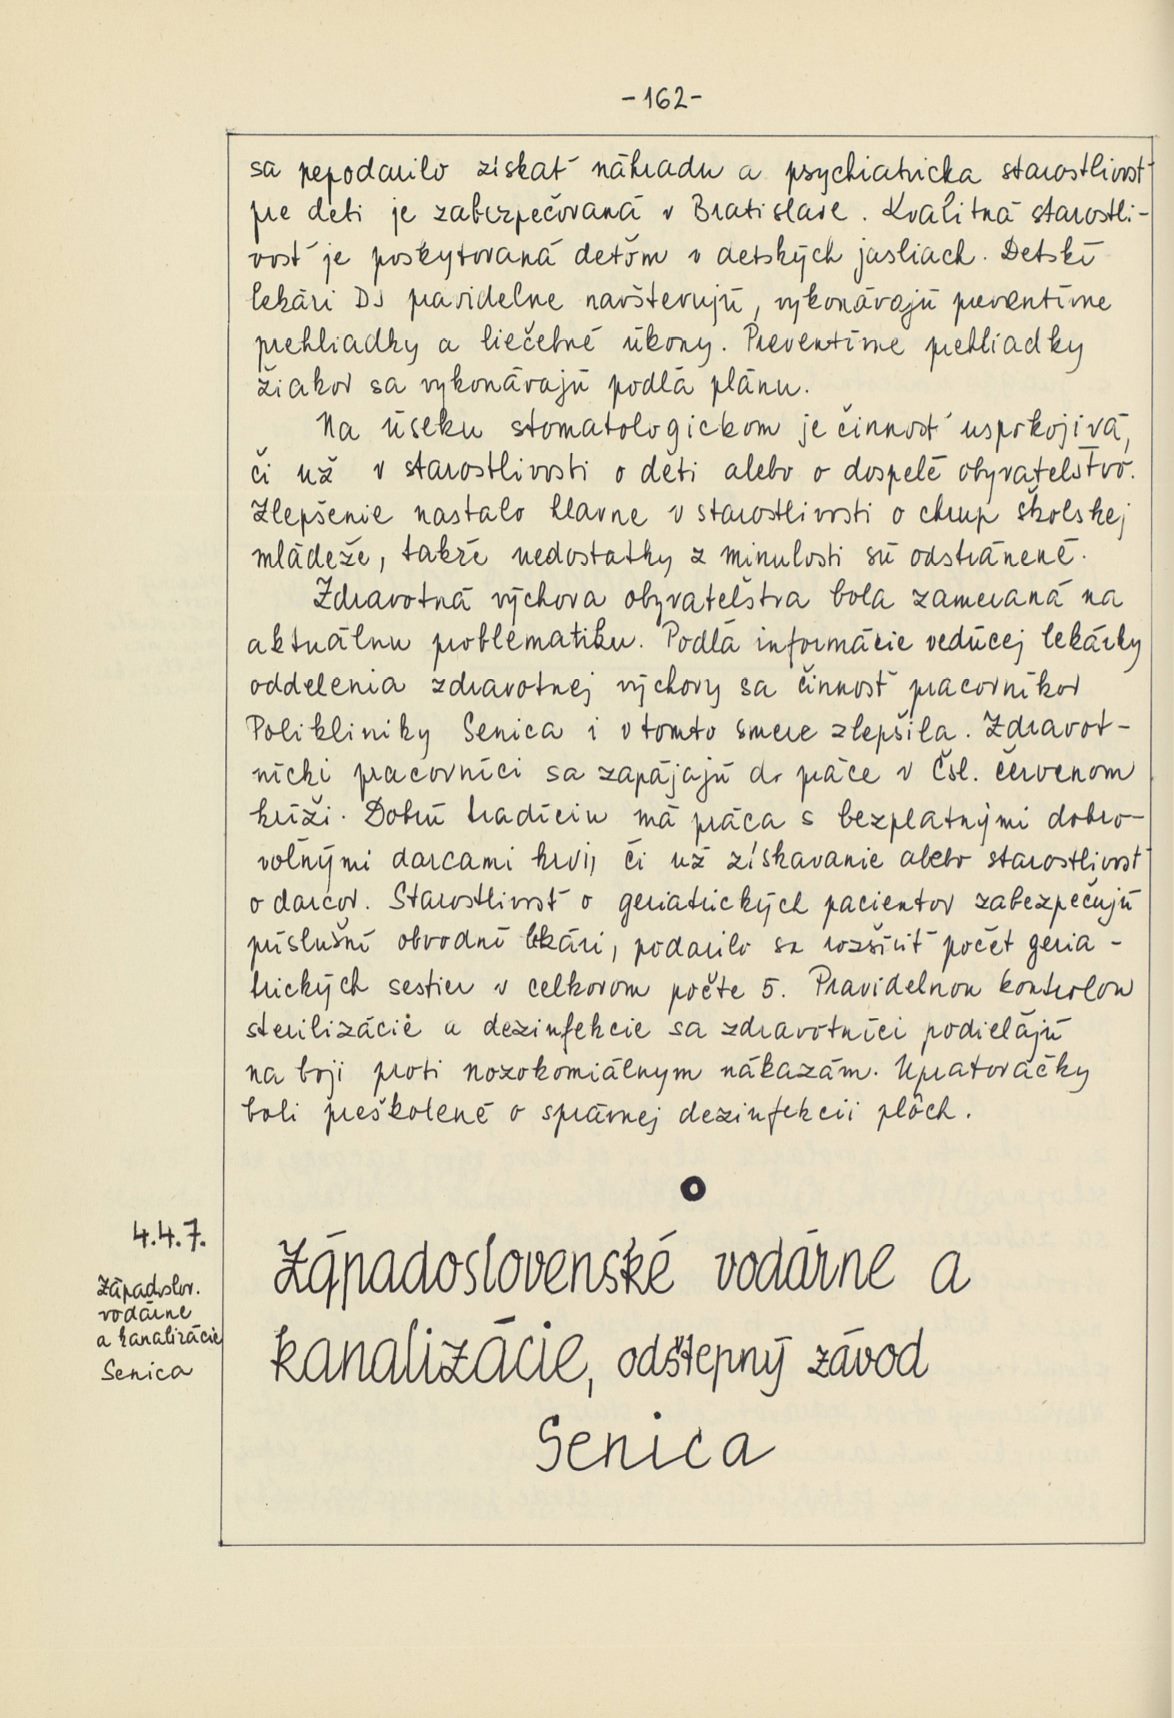 -162-
sa nepodarilo získať náhradu a psychiatricka starostlivosť
pre deti je zabezpečovaná v Bratislave. Kvalitná starostli-
vosť je poskytovaná deťom v detských jasliach. Detskí
lekári DJ pravidelne navštevujú, vykonávajú preventívne
prehliadky a liečebné úkony. Preventívne prehliadky
žiakov sa vykonávajú podľa plánu.
Na úseku stomatologickom je činnosť uspokojivá,
či už v starostlivosti o deti alebo o dospelé obyvateľstvo.
Zlepšenie nastalo hlavne v starostlivosti o chrup školskej
mládeže, takže nedostatky z minulosti sú odstránené.
Zdravotná výchova obyvateľstva bola zameraná na
aktuálnu problematiku. Podľa informácie vedúcej lekárky
oddelenia zdravotnej výchovy sa činnosť pracovníkov
Polikliniky Senica i v tomto smere zlepšila. Zdravot-
nícki pracovníci sa zapájajú do práce v Čsl. červenom
kríži. Dobrú tradíciu má práca s bezplatnými dobro-
voľnými darcami krvi, či už získavanie alebo starostlivosť
o darcov. Starostlivosť o geriatrických pacientov zabezpečujú
príslušní obvodní lekári, podarilo sa rozšíriť počet geria-
trických sestier v celkovom počte 5. Pravidelnou kontrolou
sterilizácie a dezinfekcie sa zdravotníci podieľajú
na boji proti nozokomiálnym nákazám. Upratovačky
boli preškolené o správnej dezinfekcii plôch.
4.4.7.
Západoslov.
vodárne
a kanalizácie
Senica
Západoslovenské vodárne a
kanalizácie, odštepný závod
Senica